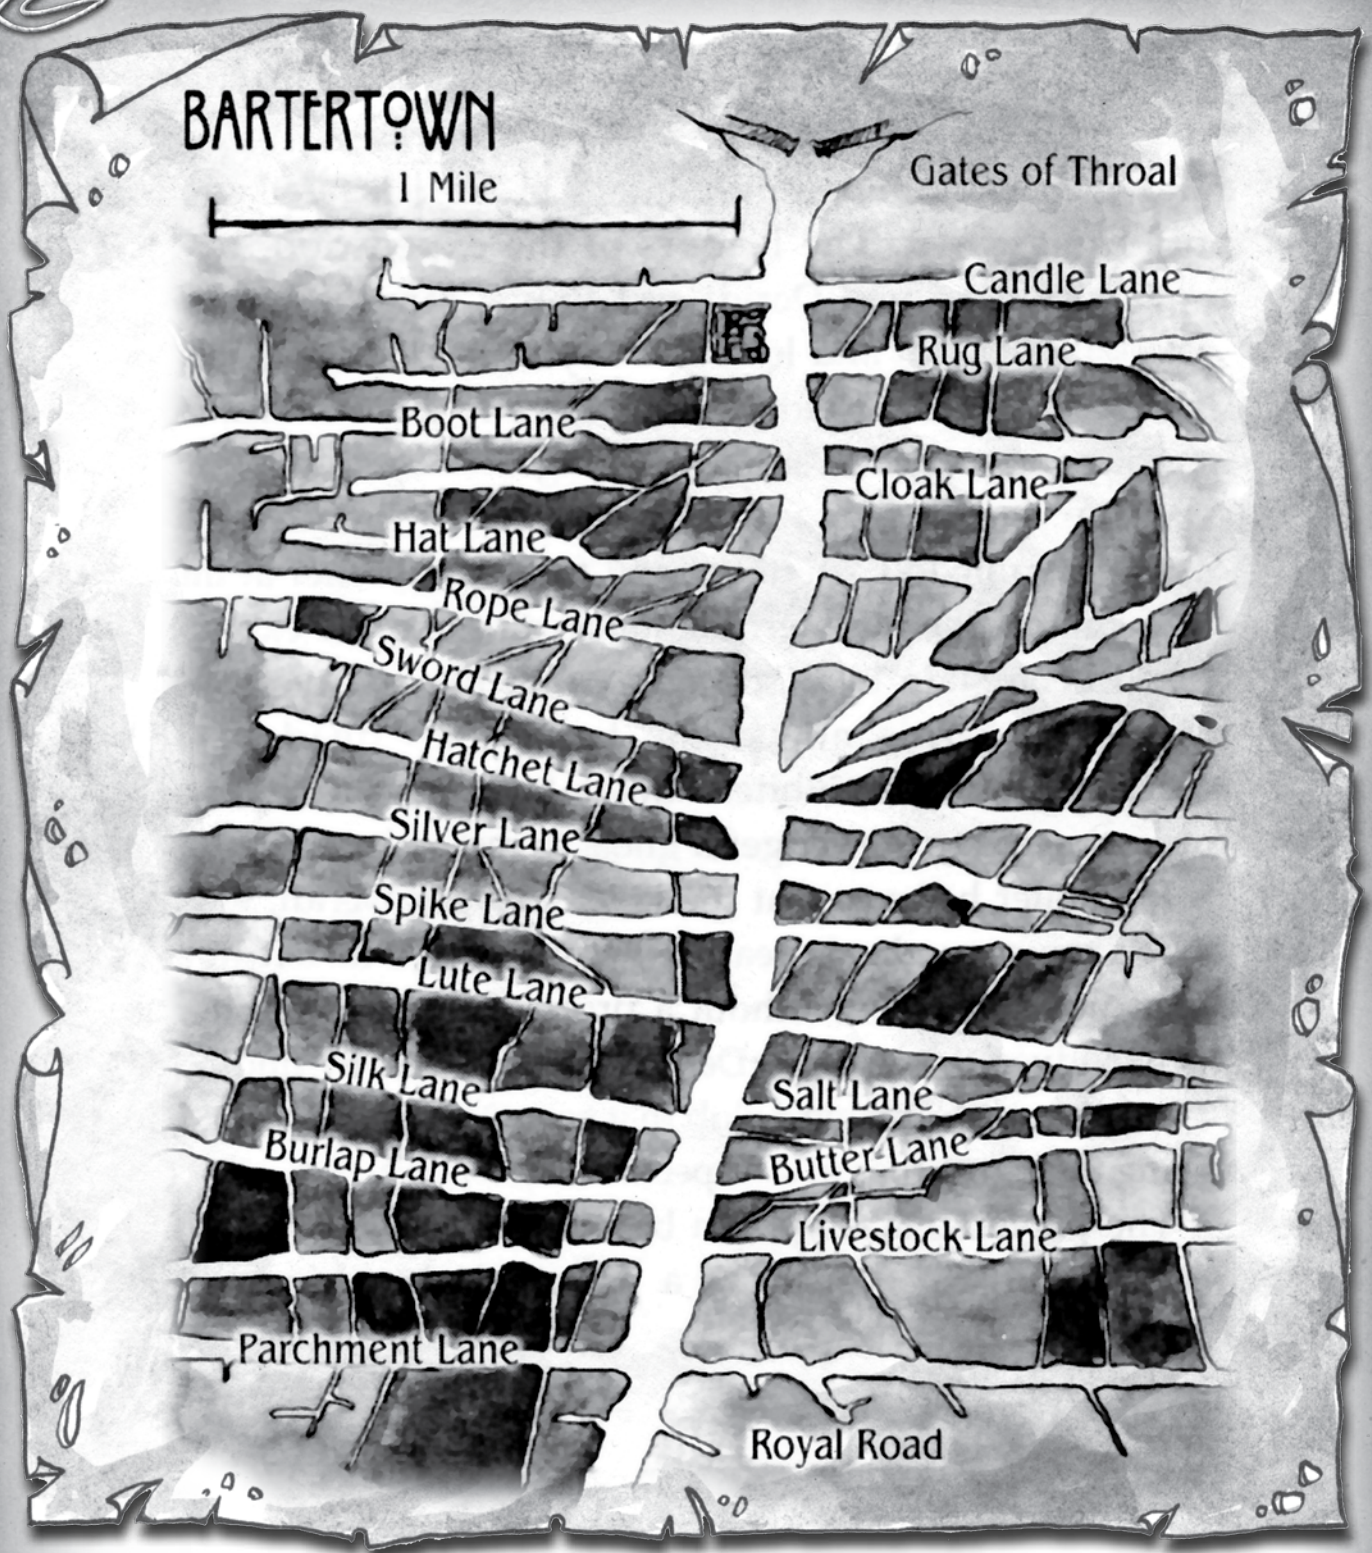 BARTERTOWN
1 Mile
Gates of Throal
Candle Lane
Rug Lane
Boot Lane
Cloak Lane
Hat Lane
Rope Lane
Sword Lane
Hatchet Lane
Silver Lane
Spike Lane
Lute Lane
Silk Lane
Salt Lane
Burlap Lane
Butter Lane
Livestock Lane
Parchment Lane
Royal Road